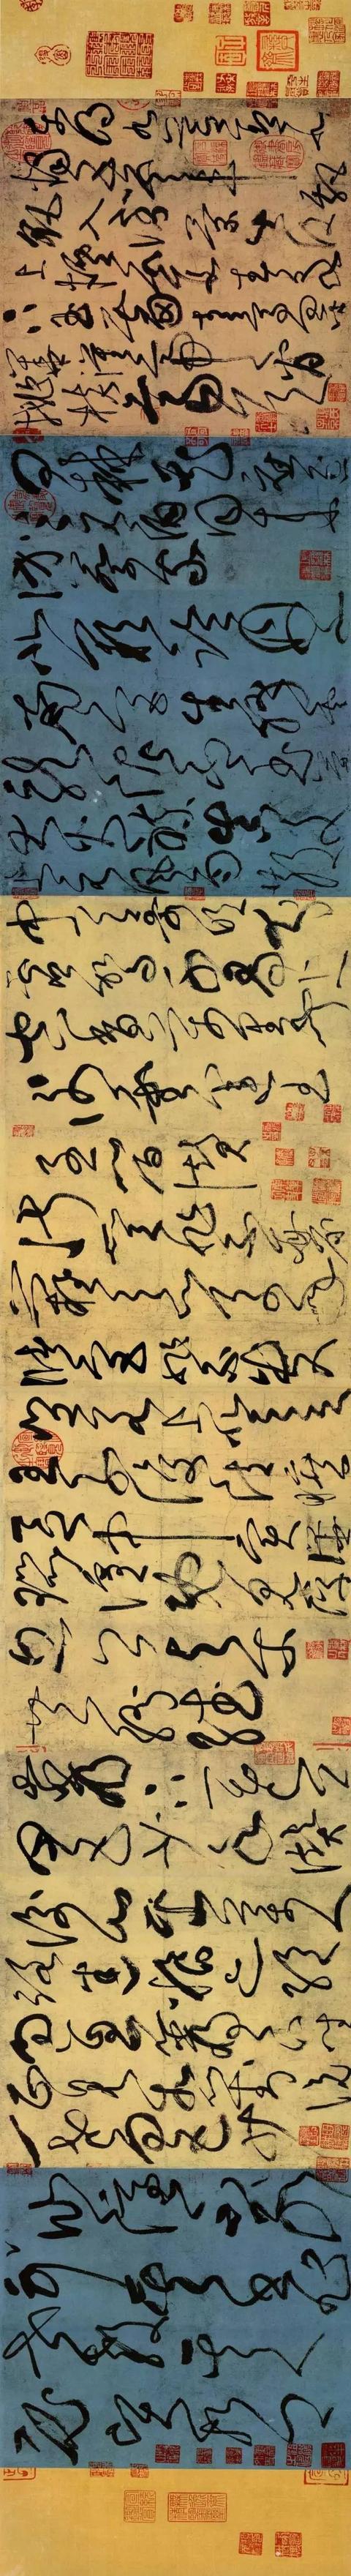 東明九芝蓋
北燭五雲車飄
颻入倒景出沒
上煙霞春泉下
玉霤青鳥向金
華漢帝看桃
核齊侯問棘
花應逐上元
酒同來訪蔡家
北闕臨丹水
南宮生絳雲
龍泥印玉簡
大火煉真文
上元風雨散
中天哥吹分
靈駕千尋上
空香萬里聞
謝靈運王
子晉讚
淑質非不麗
難以之百年
儲宮非不貴
豈若上登天
王子復清曠
區中實譁囂
喧既見浮丘公
與爾共紛繙
巖下一老公四
五少年讚
衡山採藥人
路迷粮亦絕
過息巖下坐
正見相對說
一老四五少
仙隱不可別
其書非世教
其人必賢哲